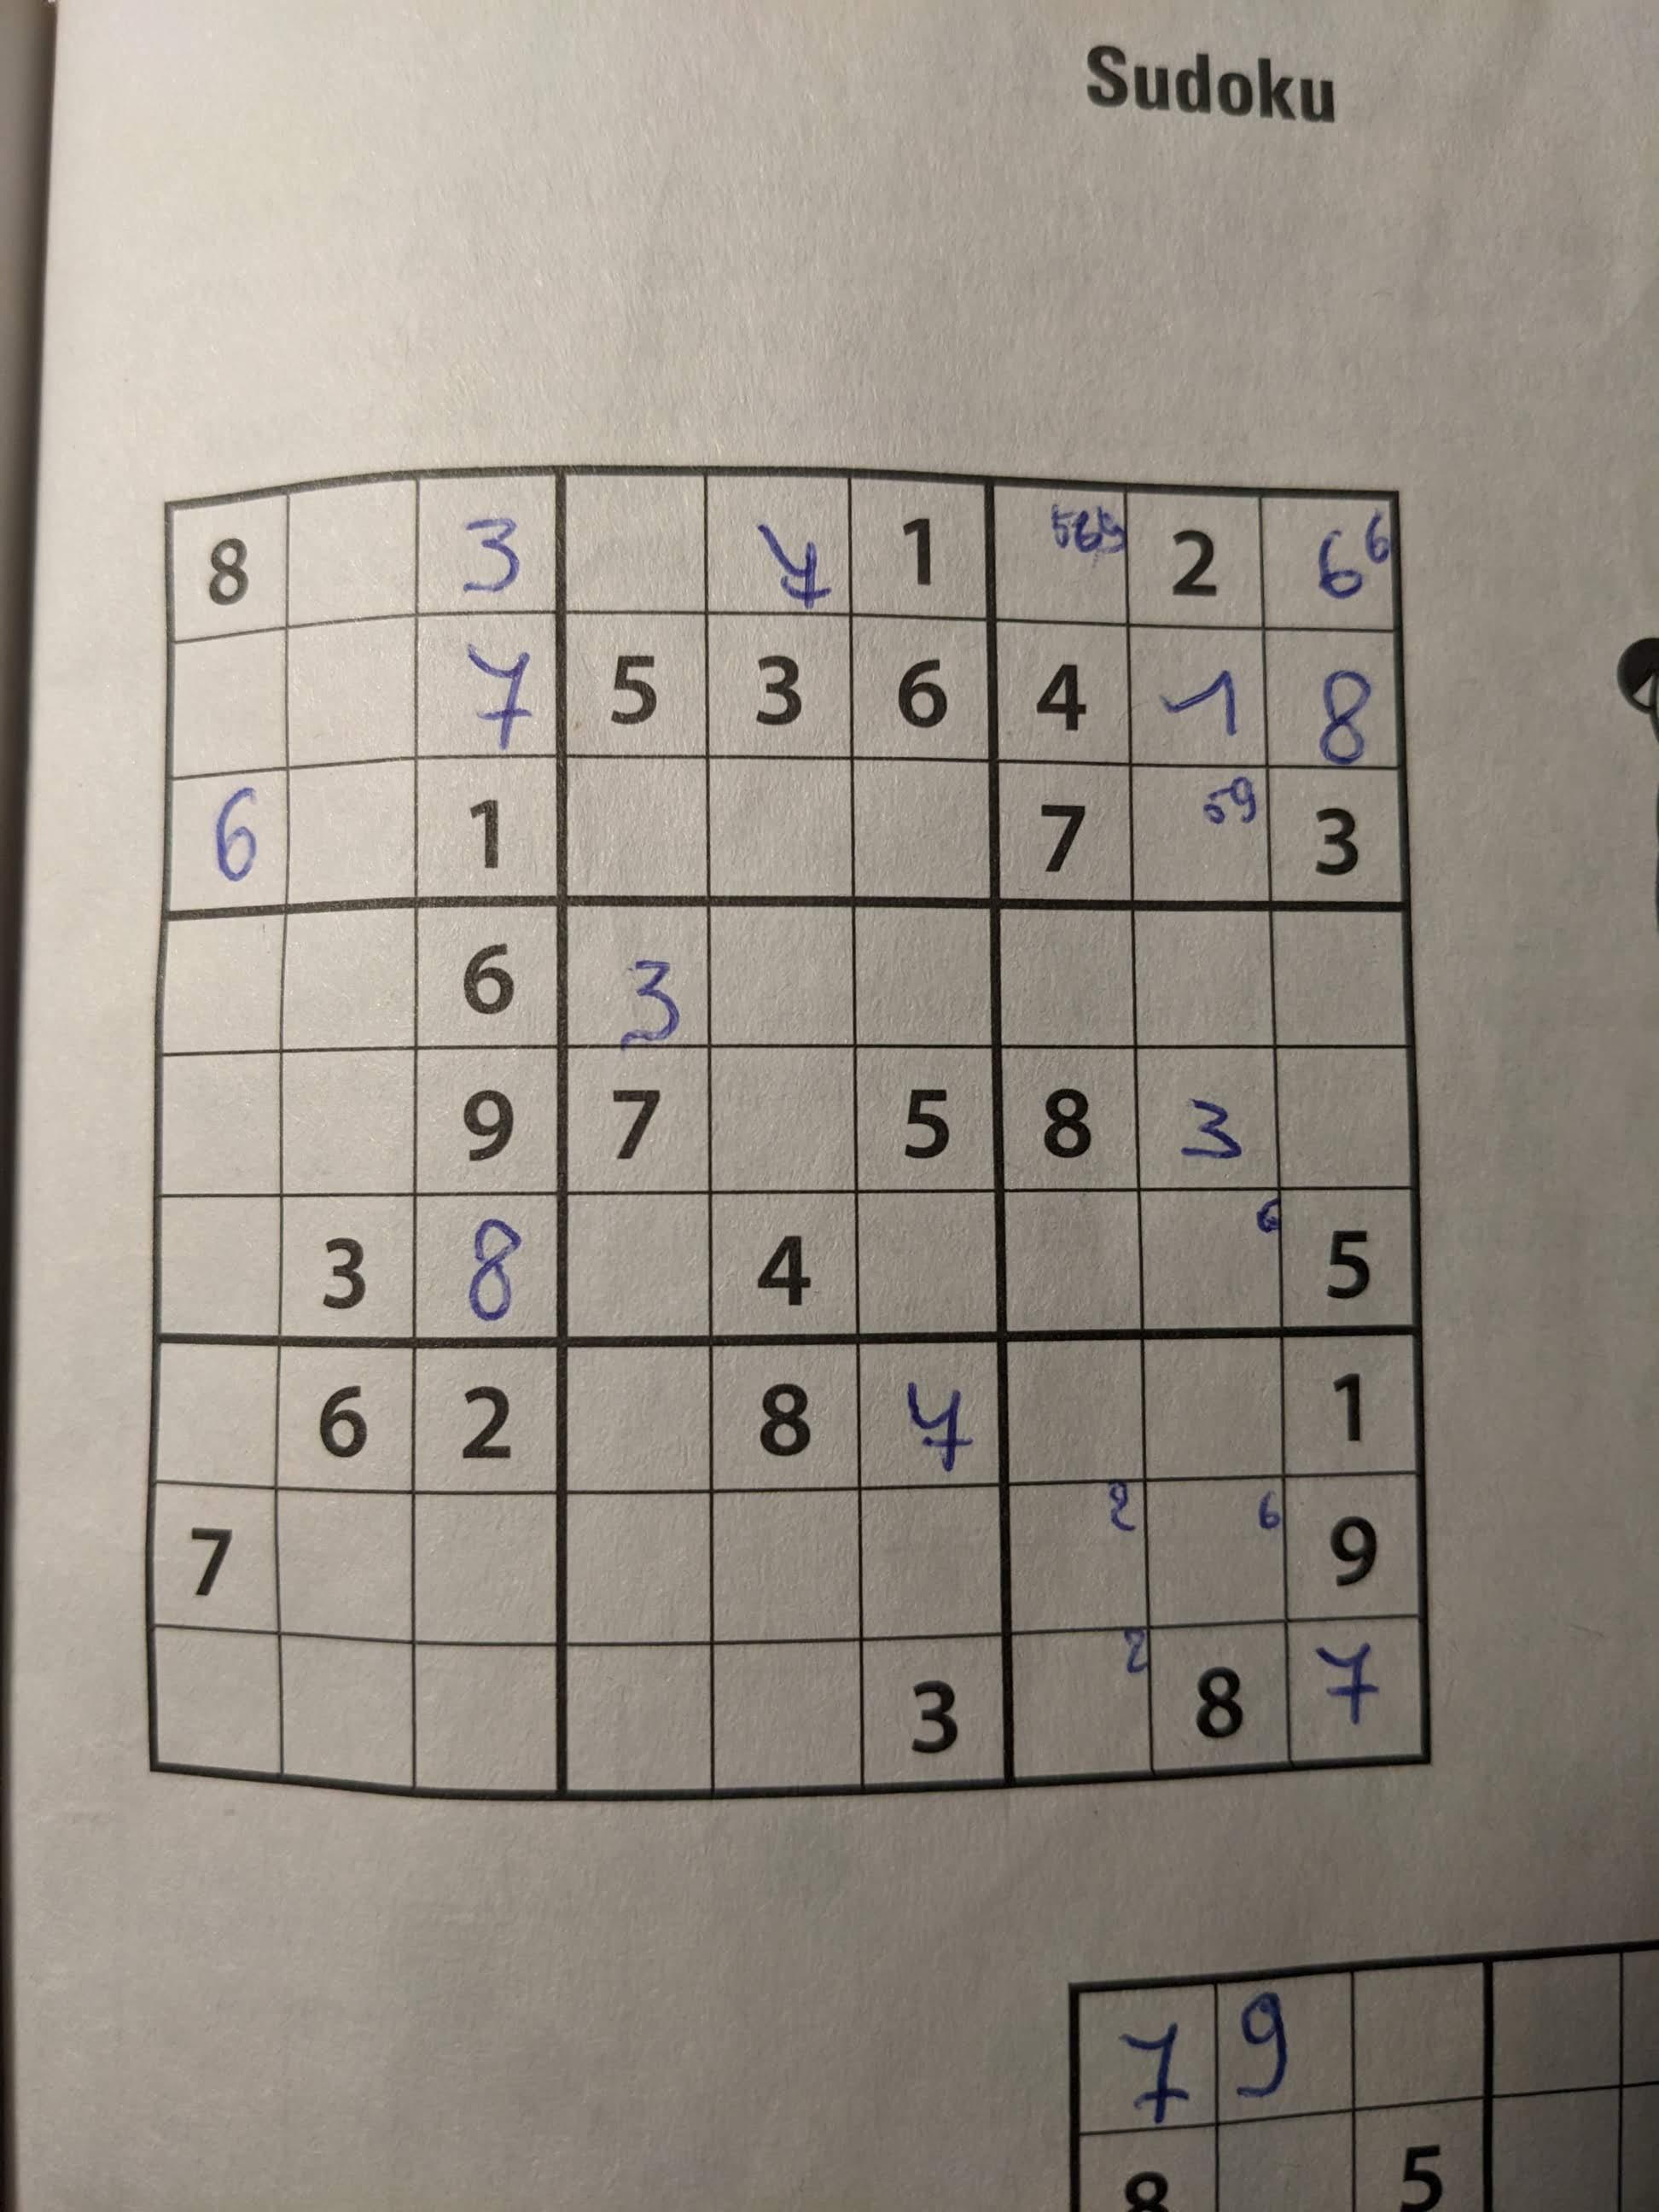 Sudoku
8 3 7 1 569 2 6 6
7 5 3 6 4 1 8
6 1 7 59 3
6 3
9 7 5 8 3
3 8 4 6 5
6 2 8 7 1
7 2 6 9
3 2 8 7
7 9
8 5